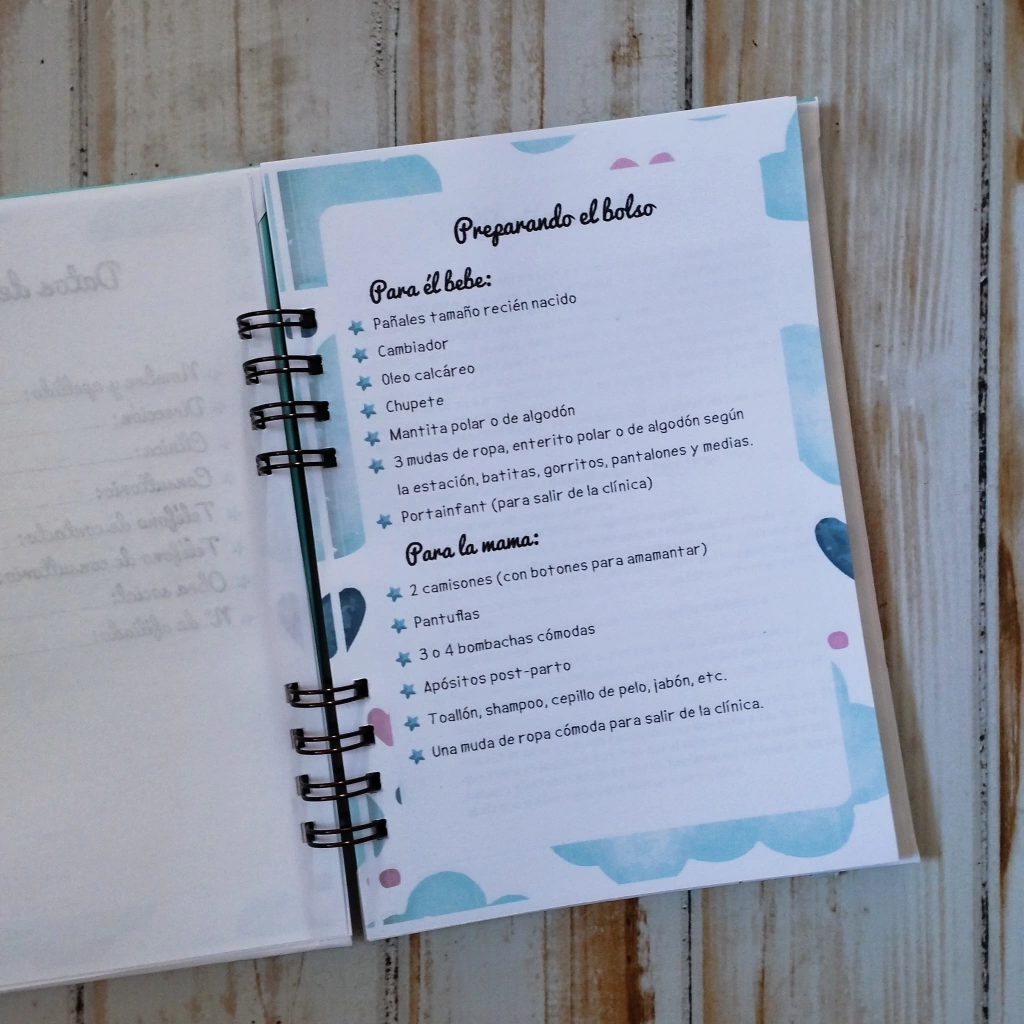 Preparando el bolso
Para él bebe:
Pañales tamaño recién nacido
Cambiador
Oleo calcáreo
Chupete
Mantita polar o de algodón
3 mudas de ropa, enterito polar o de algodón según
la estación, batitas, gorritos, pantalones y medias.
Portainfant (para salir de la clínica)
Para la mama:
2 camisones (con botones para amamantar)
Pantuflas
3 o 4 bombachas cómodas
Apósitos post-parto
Toallón, shampoo, cepillo de pelo, jabón, etc.
Una muda de ropa cómoda para salir de la clínica.